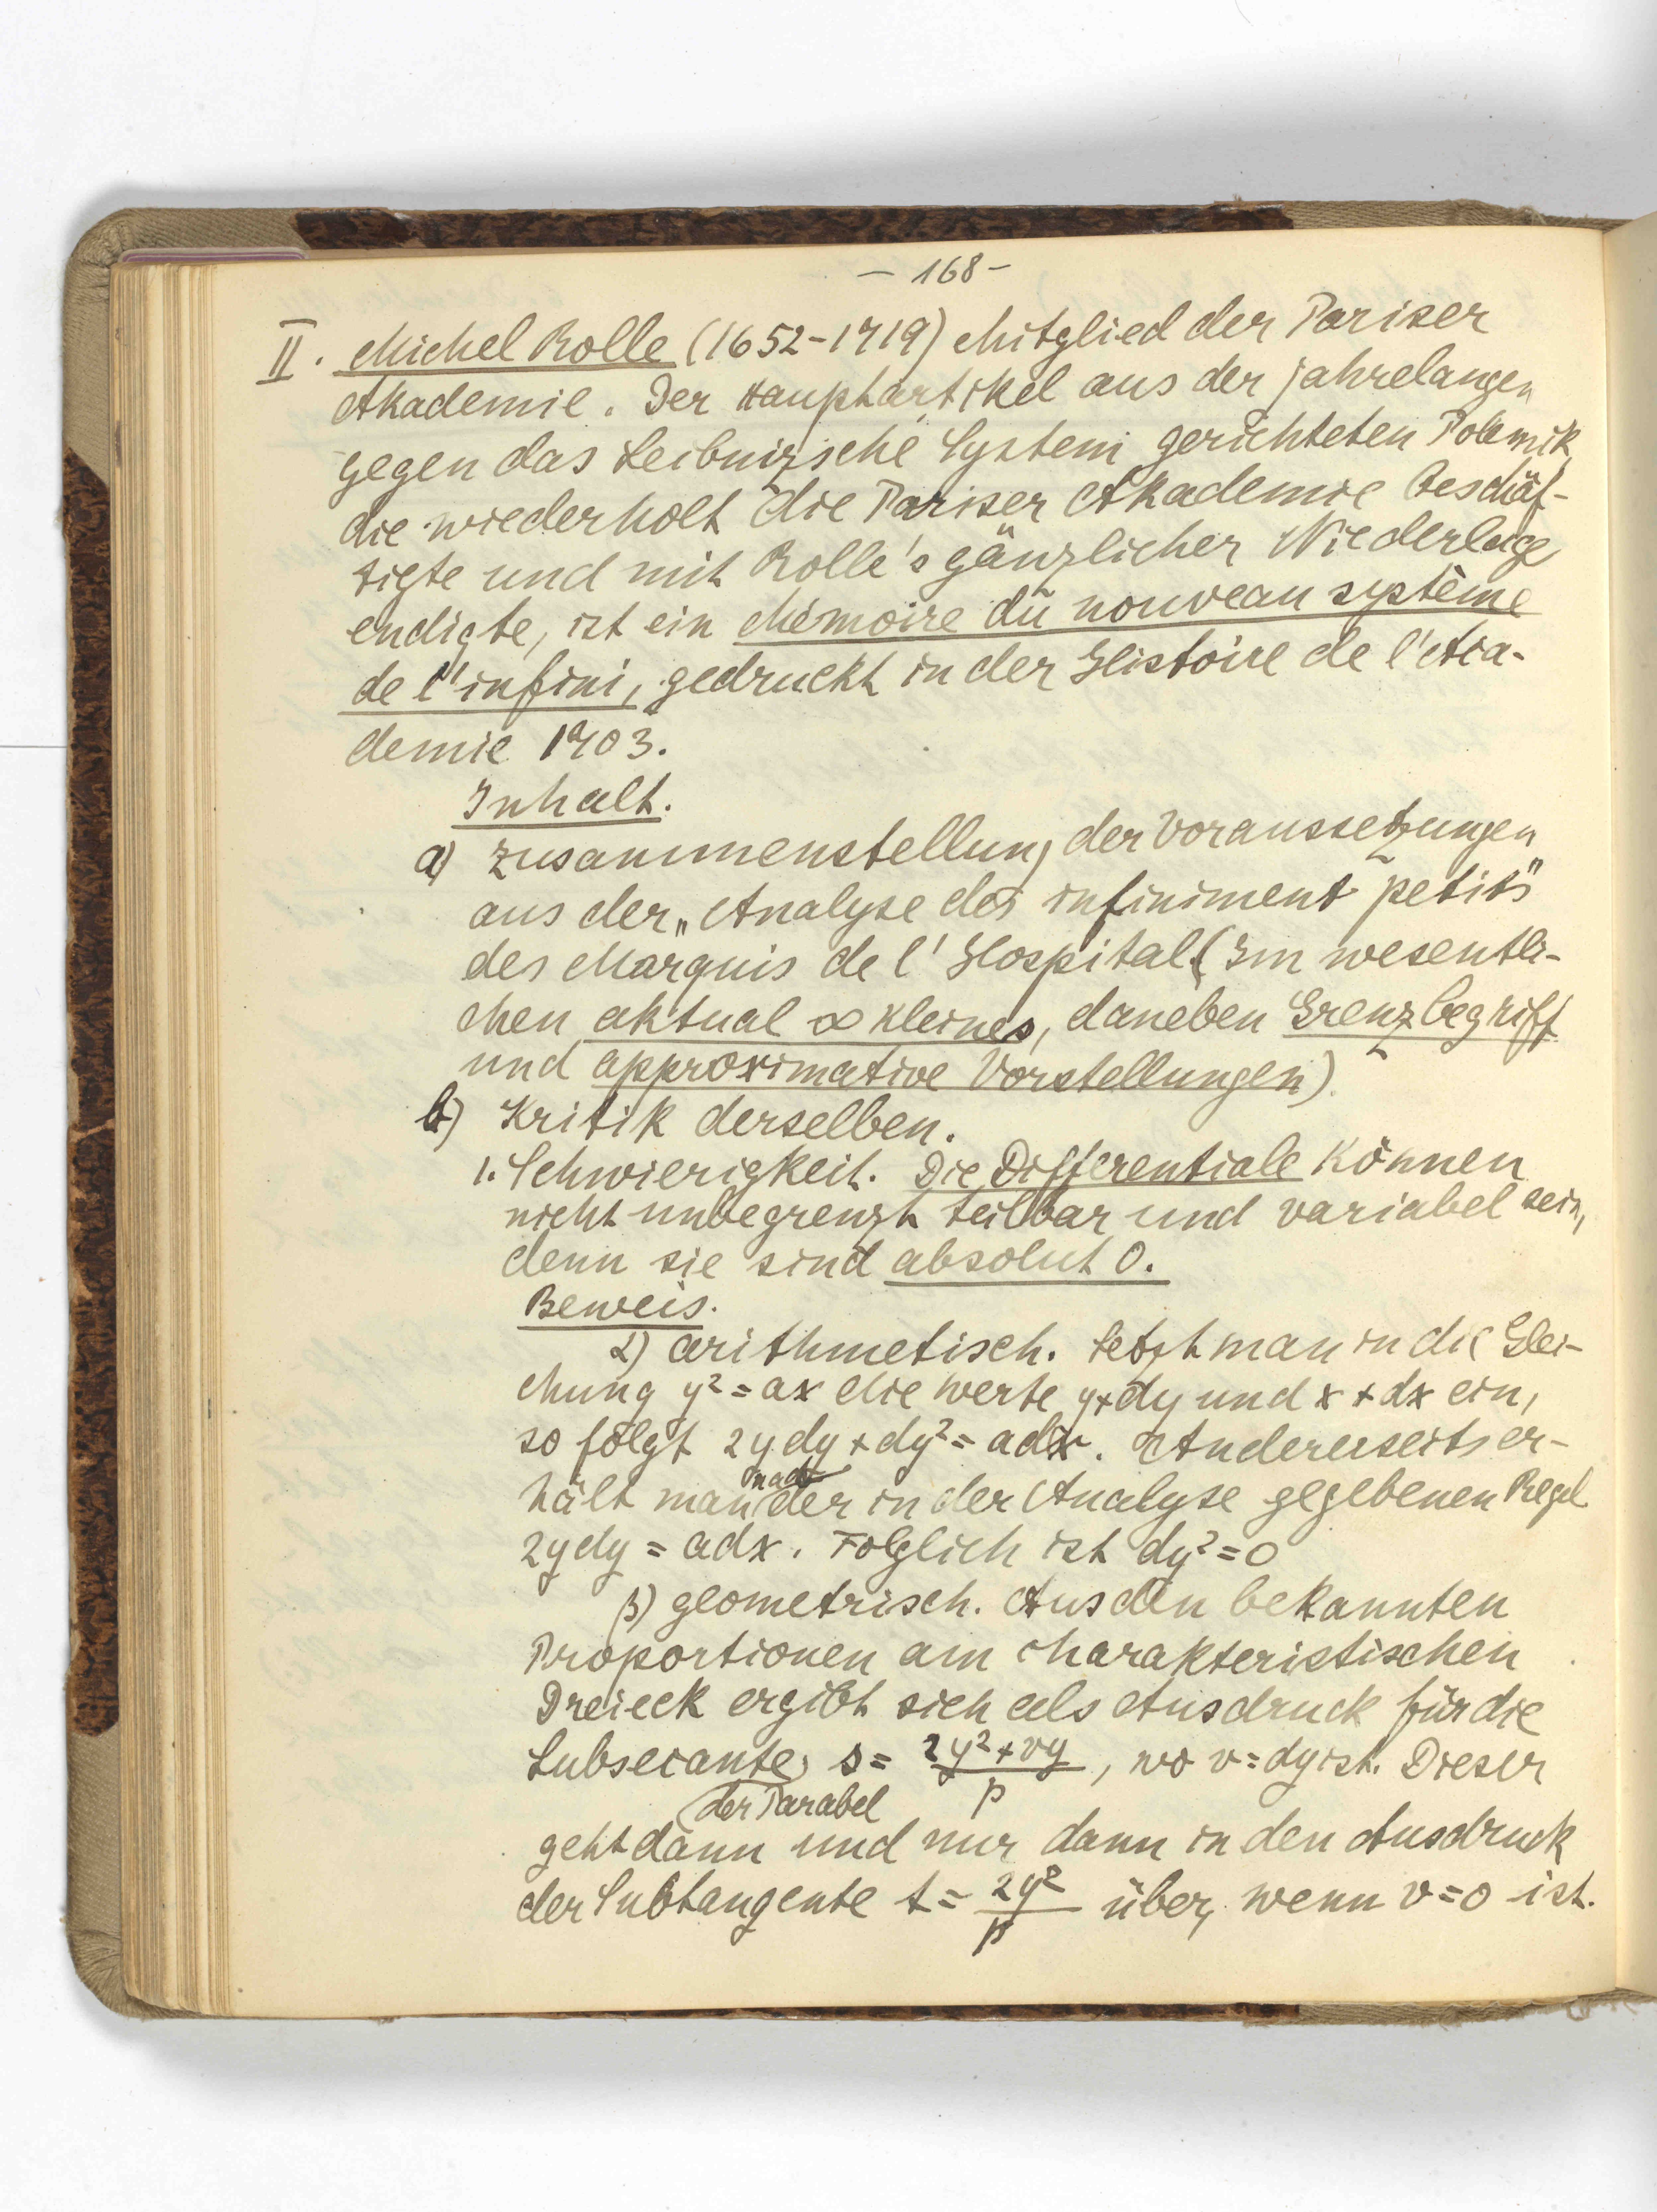 — 168 —
II. Michel Rolle (1652-1719) Mitglied der Pariser
Akademie. Der Hauptartikel aus der jahrelangen
gegen das Leibnizsche System gerichteten Polemik,
die wiederholt die Pariser Akademie beschäf-
tigte und mit Rolle's gänzlicher Niederlage
endigte, ist ein Mémoire du nouveau système
de l'infini, gedruckt in der Histoire de l'Aca-
demie 1703.
Inhalt.
a) Zusammenstellung der Voraussetzungen
aus der „Analyse des infiniment petits"
des Marquis de l'Hospital (Im wesentli-
chen aktual ∞ kleines, daneben Grenzbegriff
und approximative Vorstellungen).
b) Kritik derselben.
1. Schwierigkeit. Die Differentiale können
nicht unbegrenzt teilbar und variabel sein,
denn sie sind absolut 0.
Beweis.
α) arithmetisch. Setzt man in die Glei-
chung y² = ax die Werte y+dy und x+dx ein,
so folgt 2ydy + dy² = adx. Andererseits er-
hält man nach der in der Analyse gegebenen Regel
2ydy = adx. Folglich ist dy² = 0
β) geometrisch. Aus den bekannten
Proportionen am charakteristischen
Dreieck ergibt sich als Ausdruck für die
Subsecante der Parabel s = (2y²+vy)/p, wo v = dy ist. Dieser
geht dann und nur dann in den Ausdruck
der Subtangente t = 2y²/p über, wenn v = 0 ist.